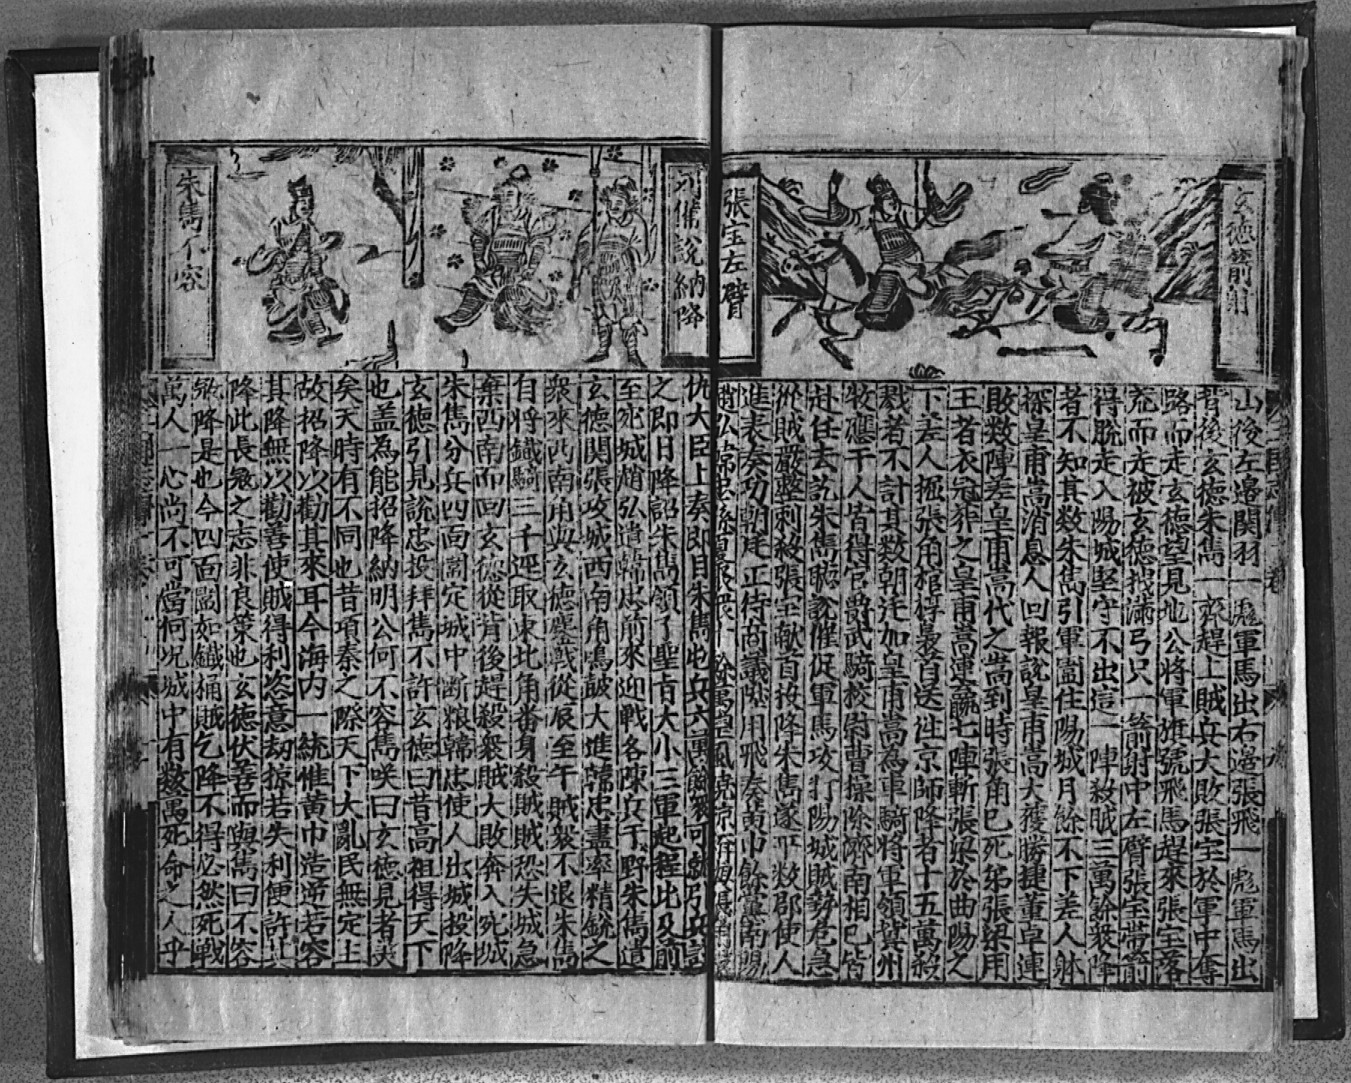 玄德箭射
張宝左臂
山後左邉関羽一彪軍馬出右邉張飛一彪軍馬出
背後玄德朱雋一齊趕上賊兵大敗張宝於軍中奪
路而走玄德望見地公將軍旗號飛馬趕來張宝落
荒而走被玄德拽滿弓只一箭射中左臂張宝帶箭
得脫走入陽城堅守不出這一陣殺賊三萬餘衆降
者不知其数朱雋引軍圍住陽城月餘不下差人躰
探皇甫嵩消息人回報說皇甫嵩大獲勝捷董卓連
敗数陣差皇甫嵩代之嵩到時張角已死弟張梁用
王者衣冠葬之皇甫嵩連贏七陣斬張梁於曲陽之
下差人掘張角棺槨裊首送徃京師降者十五萬殺
戮者不計其数朝廷加皇甫嵩為車騎將軍領冀州
牧應干人皆得官爵武騎校尉曹操除濟南相已皆
赴任去訖朱雋聽說催促軍馬攻打陽城賊勢危急
賊嚴整刺殺張宝獻首投降朱雋遂平数郡使人
進表奏功朝廷正待商議陞用飛奏黄巾餘黨南陽
趙弘韓忠孫餘萬望風燒
刘俻說納降
朱雋不容
仇大臣上奏即目朱雋屯兵六萬餘衆可就引兵討
之即日降詔朱雋領了聖旨大小三軍起程比及前
至宛城趙弘遣韓忠前來迎戰各陳兵于野朱雋遣
玄德関張攻城西南角鳴鼓大進韓忠盡率精銳之
衆來西南角與玄德鏖戰從辰至午賊衆不退朱雋
自將鐵騎三千逕取東北角番身殺賊賊恐失城急
棄西南而回玄德從背後趕殺衆賊大敗奔入宛城
朱雋分兵四面圍定城中断粮韓忠使人出城投降
玄德引見說忠投拜雋不許玄德曰昔高祖得天下
也盖為能招降納明公何不容雋咲曰玄德見者美
矣天時有不同也昔項秦之際天下大亂民無定主
故招降以勸其來耳今海内一統惟黄巾造逆若容
其降無以勸善使賊得利恣意刼掠若失利便許其
降此長冦之志非良策也玄德伏善而與雋曰不容
冦降是也今四面圍如鐵桶賊乞降不得必然死戰
萬人一心尚不可當何况城中有数萬死命之人乎